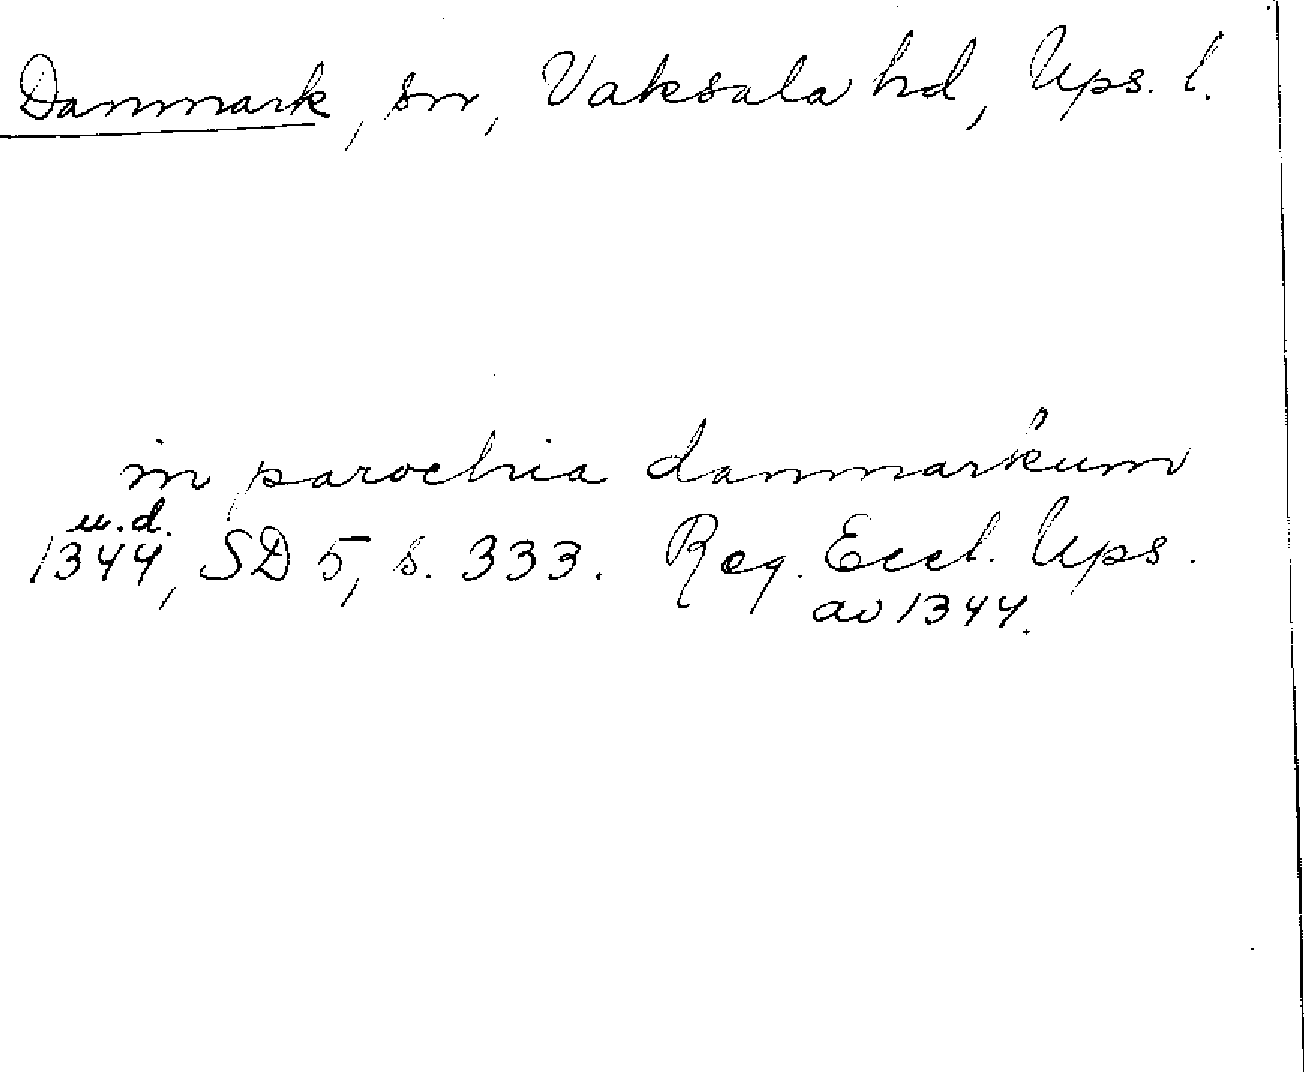 Danmark, sn, Vaksala hd, Ups. l.
in parochia danmarkum
u.d.
1344, SD 5, s. 333. Reg. Eccl. Ups.
av 1344.